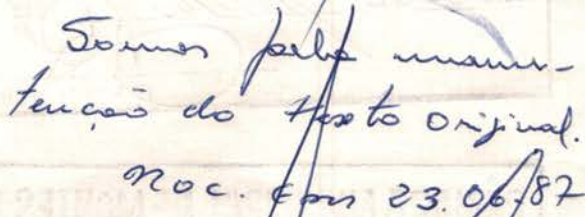 Somos pela manu-
tenção do texto original.
Roc. em 23.06/87